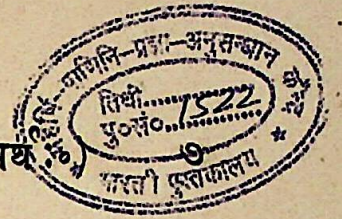 पाणिनि-प्रज्ञा-अनुसन्धान
तिथी..........
पु०सं०....1522....
भारती पुस्तकालय